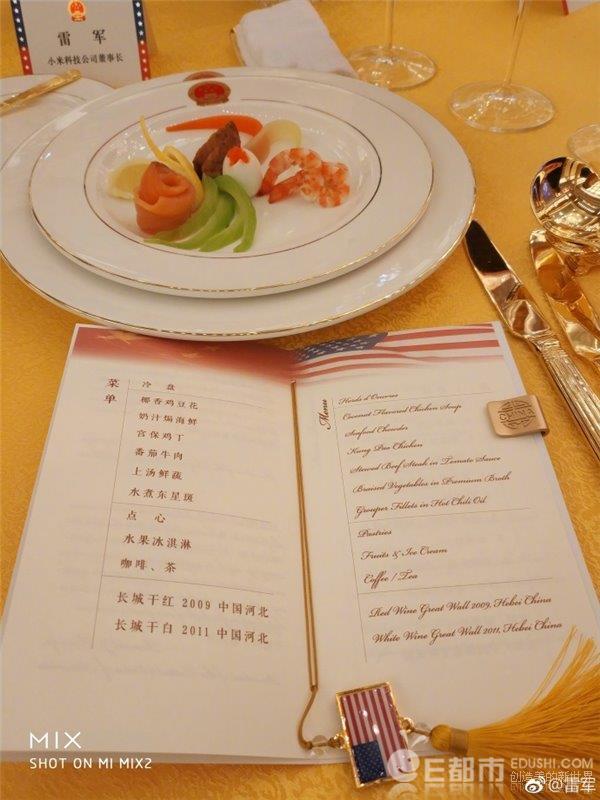 雷 军
小米科技公司董事长
菜单
冷 盘
椰香鸡豆花
奶汁焗海鲜
宫保鸡丁
番茄牛肉
上汤鲜蔬
水煮东星斑
点 心
水果冰淇淋
咖啡、茶
长城干红 2009 中国河北
长城干白 2011 中国河北
Menu
Hords d'Oeuvres
Coconut Flavored Chicken Soup
Seafood Chowder
Kung Pao Chicken
Stewed Beef Steak in Tomato Sauce
Braised Vegetables in Premium Broth
Grouper Fillets in Hot Chili Oil
Pastries
Fruits & Ice Cream
Coffee / Tea
Red Wine Great Wall 2009, Hebei China
White Wine Great Wall 2011, Hebei China
CHINA
MIX
SHOT ON MI MIX2
E都市 EDUSHI.COM
创造美的新世界
@雷军